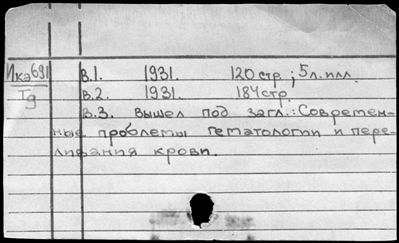 Ика691 В.1. 1931. 120 стр.; 5 л. илл.
Тд В.2. 1931. 184 стр.
В.3. вышел под загл.: Современ-
ные проблемы гематологии и пере-
ливания крови.